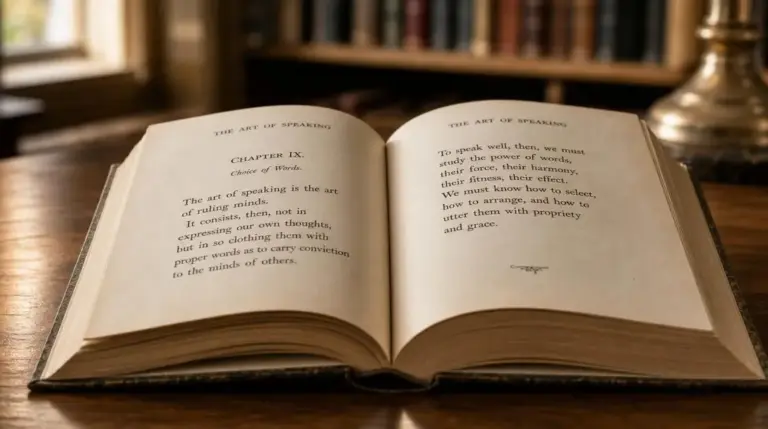 THE ART OF SPEAKING
CHAPTER IX.
Choice of Words.
The art of speaking is the art
of ruling minds.
It consists, then, not in
expressing our own thoughts,
but in so clothing them with
proper words as to carry conviction
to the minds of others.
THE ART OF SPEAKING
To speak well, then, we must
study the power of words,
their force, their harmony,
their fitness, their effect.
We must know how to select,
how to arrange, and how to
utter them with propriety
and grace.